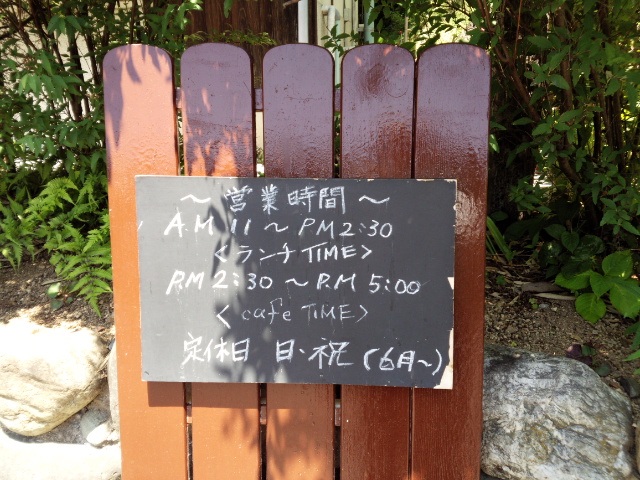 ～ 営業時間 ～
A.M 11 ～ PM 2:30
＜ランチ TIME＞
P.M 2:30 ～ P.M 5:00
＜cafe TIME＞
定休日 日・祝 (6月～)